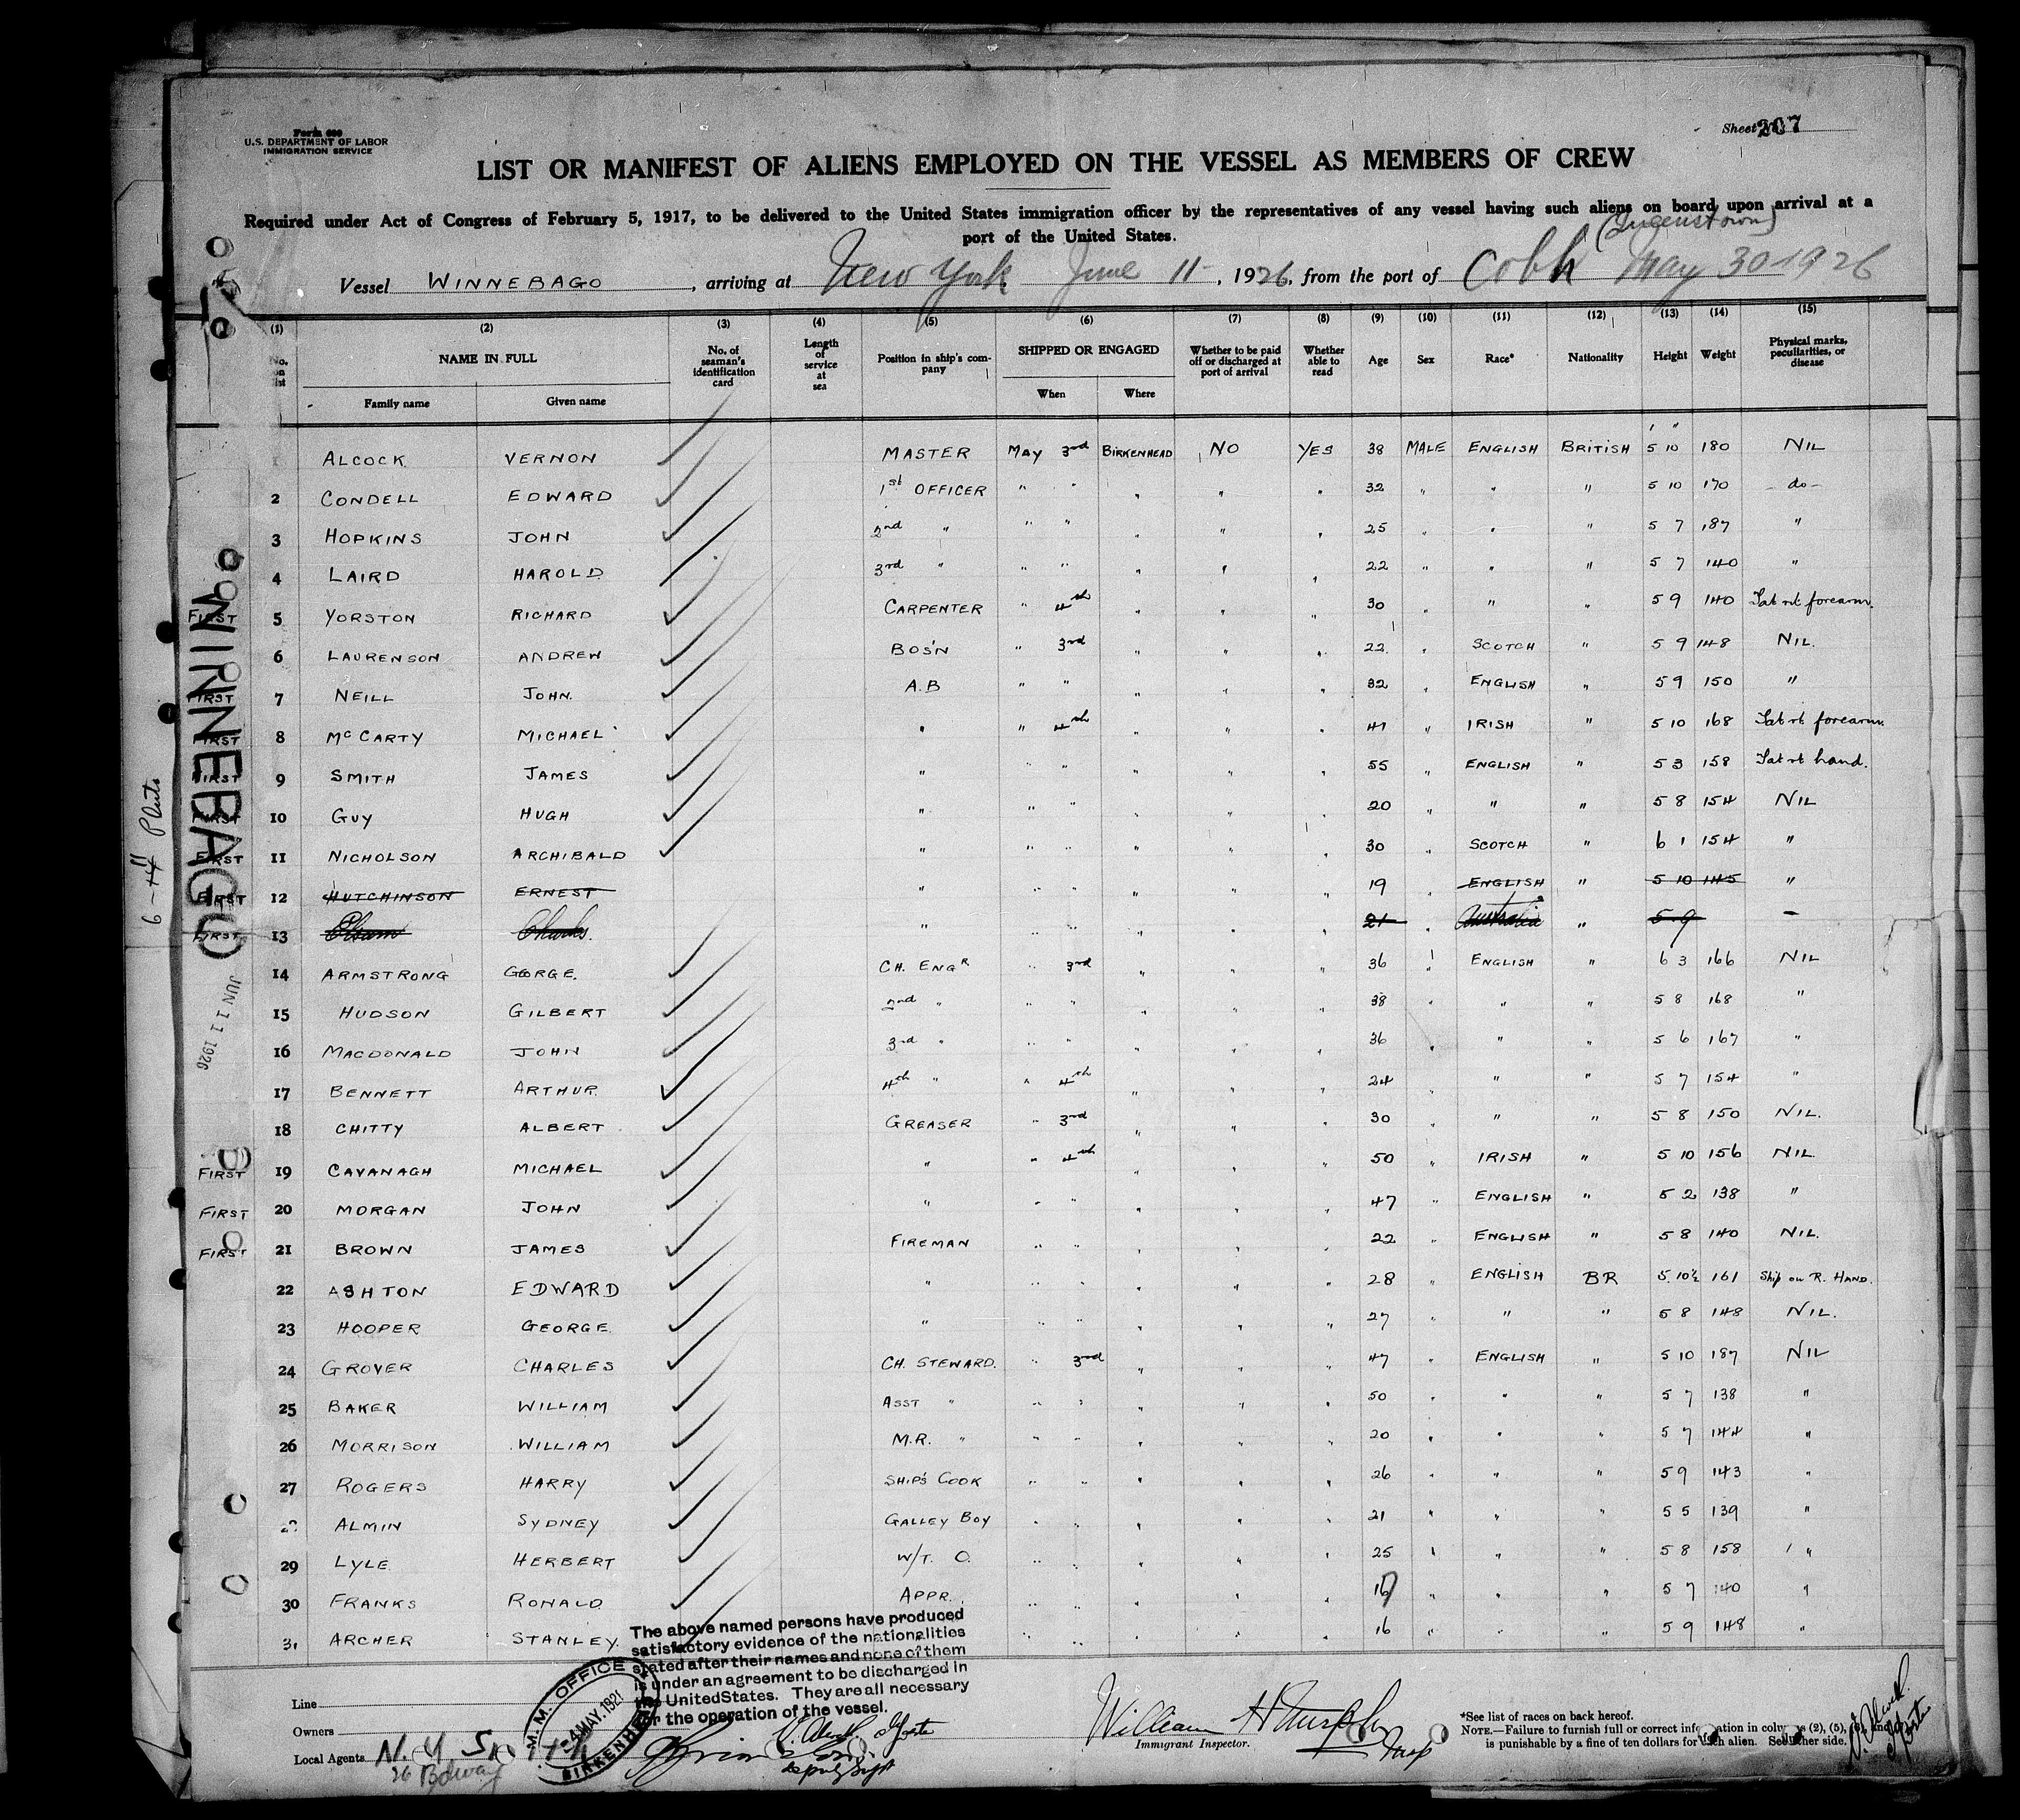 Form 689
U.S. DEPARTMENT OF LABOR
IMMIGRATION SERVICE
Sheet 207
LIST OR MANIFEST OF ALIENS EMPLOYED ON THE VESSEL AS MEMBERS OF CREW
Required under Act of Congress of February 5, 1917, to be delivered to the United States immigration officer by the representatives of any vessel having such aliens on board upon arrival at a
port of the United States.
(Queenstown)
Vessel WINNEBAGO, arriving at New York June 11, 1926, from the port of Cobh May 30 1926
(1) (2) (3) (4) (5) (6) (7) (8) (9) (10) (11) (12) (13) (14) (15)
No. on list NAME IN FULL No. of seaman's identification card Length of service at sea Position in ship's company SHIPPED OR ENGAGED Whether to be paid off or discharged at port of arrival Whether able to read Age Sex Race* Nationality Height Weight Physical marks, peculiarities, or disease
Family name Given name When Where
ALCOCK VERNON MASTER MAY 3rd BIRKENHEAD NO YES 38 MALE ENGLISH BRITISH 5 10 180 NIL
2 CONDELL EDWARD 1st OFFICER " " " " " 32 " " " 5 10 170 - do -
3 HOPKINS JOHN 2nd " " " " " " 25 " " " 5 7 187 "
4 LAIRD HAROLD 3rd " " " " " " 22 " " " 5 7 140 "
FIRST 5 YORSTON RICHARD CARPENTER " 4th " " " 30 " " " 5 9 140 Tat rt forearm.
6 LAURENSON ANDREW BOS'N " 3rd " " " 22 " SCOTCH " 5 9 148 NIL.
FIRST 7 NEILL JOHN. A.B " " " " " 32 " ENGLISH " 5 9 150 "
FIRST 8 McCARTY MICHAEL " " 4th " " " 41 " IRISH " 5 10 168 Tat rt forearm.
FIRST 9 SMITH JAMES " " " " " " 55 " ENGLISH " 5 3 158 Tat rt hand.
FIRST 10 GUY HUGH " " " " " " 20 " " " 5 8 154 NIL
FIRST 11 NICHOLSON ARCHIBALD " " " " " " 30 " SCOTCH " 6 1 154 "
FIRST 12 HUTCHINSON ERNEST " " " " " " 19 " ENGLISH " 5 10 145 "
FIRST 13 Charles. " " " " " " 21 " Australia " 5 9 -
14 ARMSTRONG GEORGE. CH. ENGR " 3rd " " " 36 " ENGLISH " 6 3 166 NIL
15 HUDSON GILBERT 2nd " " " " " " 38 " " " 5 8 168 "
16 MACDONALD JOHN 3rd " " " " " " 36 " " " 5 6 167 "
17 BENNETT ARTHUR. 4th " " 4th " " " 24 " " " 5 7 154 "
18 CHITTY ALBERT. GREASER " 3rd " " " 30 " " " 5 8 150 NIL.
FIRST 19 CAVANAGH MICHAEL " " 4th " " " 50 " IRISH " 5 10 156 NIL.
FIRST 20 MORGAN JOHN " " " " " " 47 " ENGLISH " 5 2 138 "
FIRST 21 BROWN JAMES FIREMAN " " " " " 22 " ENGLISH " 5 8 140 NIL.
22 ASHTON EDWARD " " " " " " 28 " ENGLISH BR 5.10½ 161 Ship on R. HAND.
23 HOOPER GEORGE " " " " " " 27 " " " 5 8 148 NIL.
24 GROVER CHARLES CH. STEWARD. " 3rd " " " 47 " ENGLISH " 5 10 187 NIL
25 BAKER WILLIAM ASST " " " " " " 50 " " " 5 7 138 "
26 MORRISON WILLIAM M.R. " " " " " " 20 " " " 5 7 144 "
27 ROGERS HARRY SHIP'S COOK " " " " " 26 " " " 5 9 143 "
28 ALMIN SYDNEY GALLEY BOY " " " " " 21 " " " 5 5 139 "
29 LYLE HERBERT W/T. O. " " " " " 25 " " " 5 8 158 "
30 FRANKS RONALD APPR. " " " " " 17 " " " 5 7 140 "
31 ARCHER STANLEY. " " " " " " 16 " " " 5 9 148 "
WINNEBAGO
JUN 11 1926
The above named persons have produced
satisfactory evidence of the nationalities
stated after their names and none of them
is under an agreement to be discharged in
the United States. They are all necessary
for the operation of the vessel.
M. M. OFFICE
4 MAY. 1921
BIRKENHEAD
Line
Owners
Local Agents N. Y.
26 Bdway
Deputy Supt
William H Murphy
Immigrant Inspector.
*See list of races on back hereof.
NOTE.—Failure to furnish full or correct information in columns (2), (5), (6), and
is punishable by a fine of ten dollars for each alien. See other side.